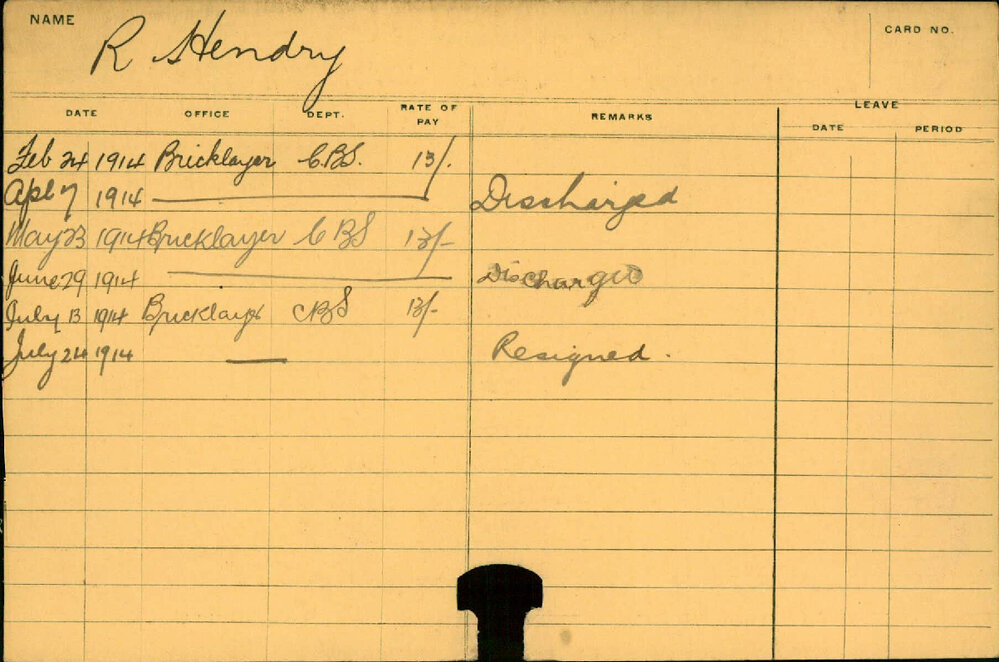 NAME R Hendry CARD NO.
DATE OFFICE DEPT. RATE OF PAY REMARKS LEAVE
DATE PERIOD
Feb 24 1914 Bricklayer C.B.S. 13/.
Apl 7 1914 — Discharged
May 23 1914 Bricklayer C B S 13/-
June 29 1914 — Discharged
July 13 1914 Bricklayer CBS 13/-
July 24 1914 — Resigned.